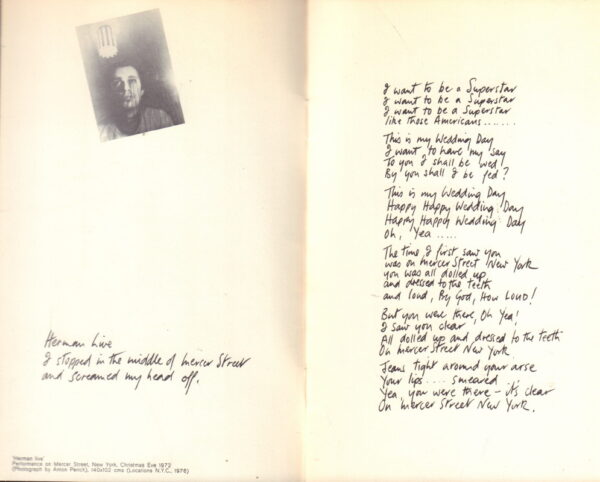 Herman Live
I stopped in the middle of Mercer Street
and screamed my head off.
'Herman live'
Performance on Mercer Street, New York, Christmas Eve 1972
(Photograph by Anton Perich), 140x102 cms (Locations N.Y.C., 1976)
I want to be a Superstar
I want to be a Superstar
I want to be a Superstar
like those Americans.......
This is my Wedding Day
I want to have my say
To you I shall be wed
By you shall I be fed?
This is my Wedding Day
Happy Happy Wedding Day
Happy Happy Wedding Day
Oh, Yea.....
The time I first saw you
was on Mercer Street New York
you was all dolled up
and dressed to the teeth
and loud, By God, How LOUD!
But you were there, Oh Yea!
I saw you clear
All dolled up and dressed to the teeth
On Mercer Street New York
Jeans tight around your arse
Your lips.... smeared
Yea, you were there - it's clear
On Mercer Street New York.